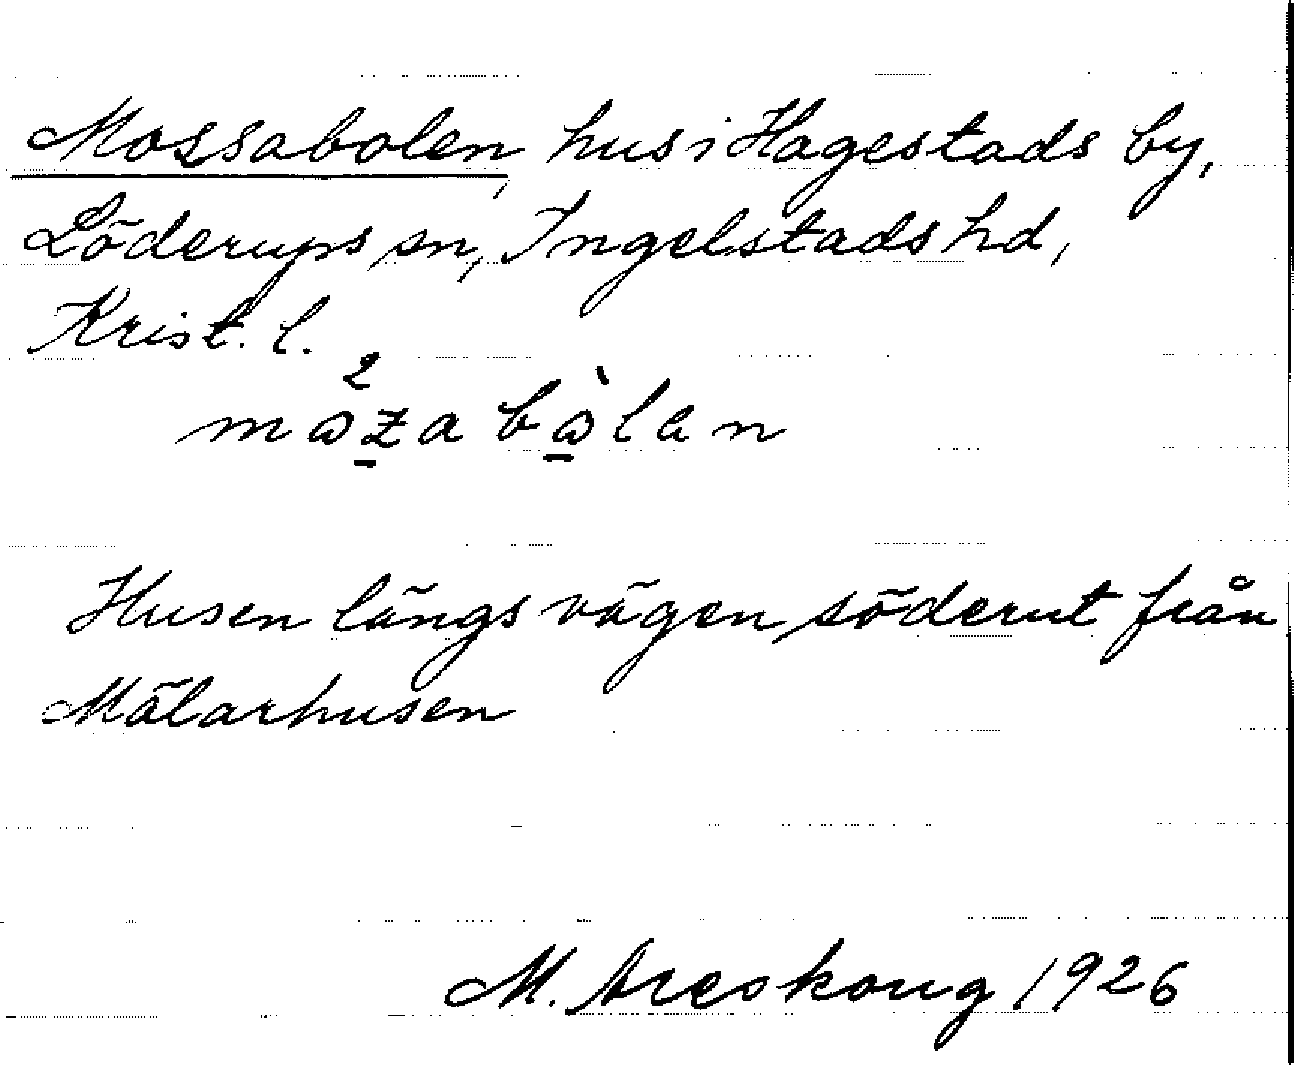 Mossabolen, hus i Hagestads by,
Löderups sn, Ingelstads hd,
Krist. l.
Husen längs vägen söderut från
Mälarhusen
M. Areskoug 1926